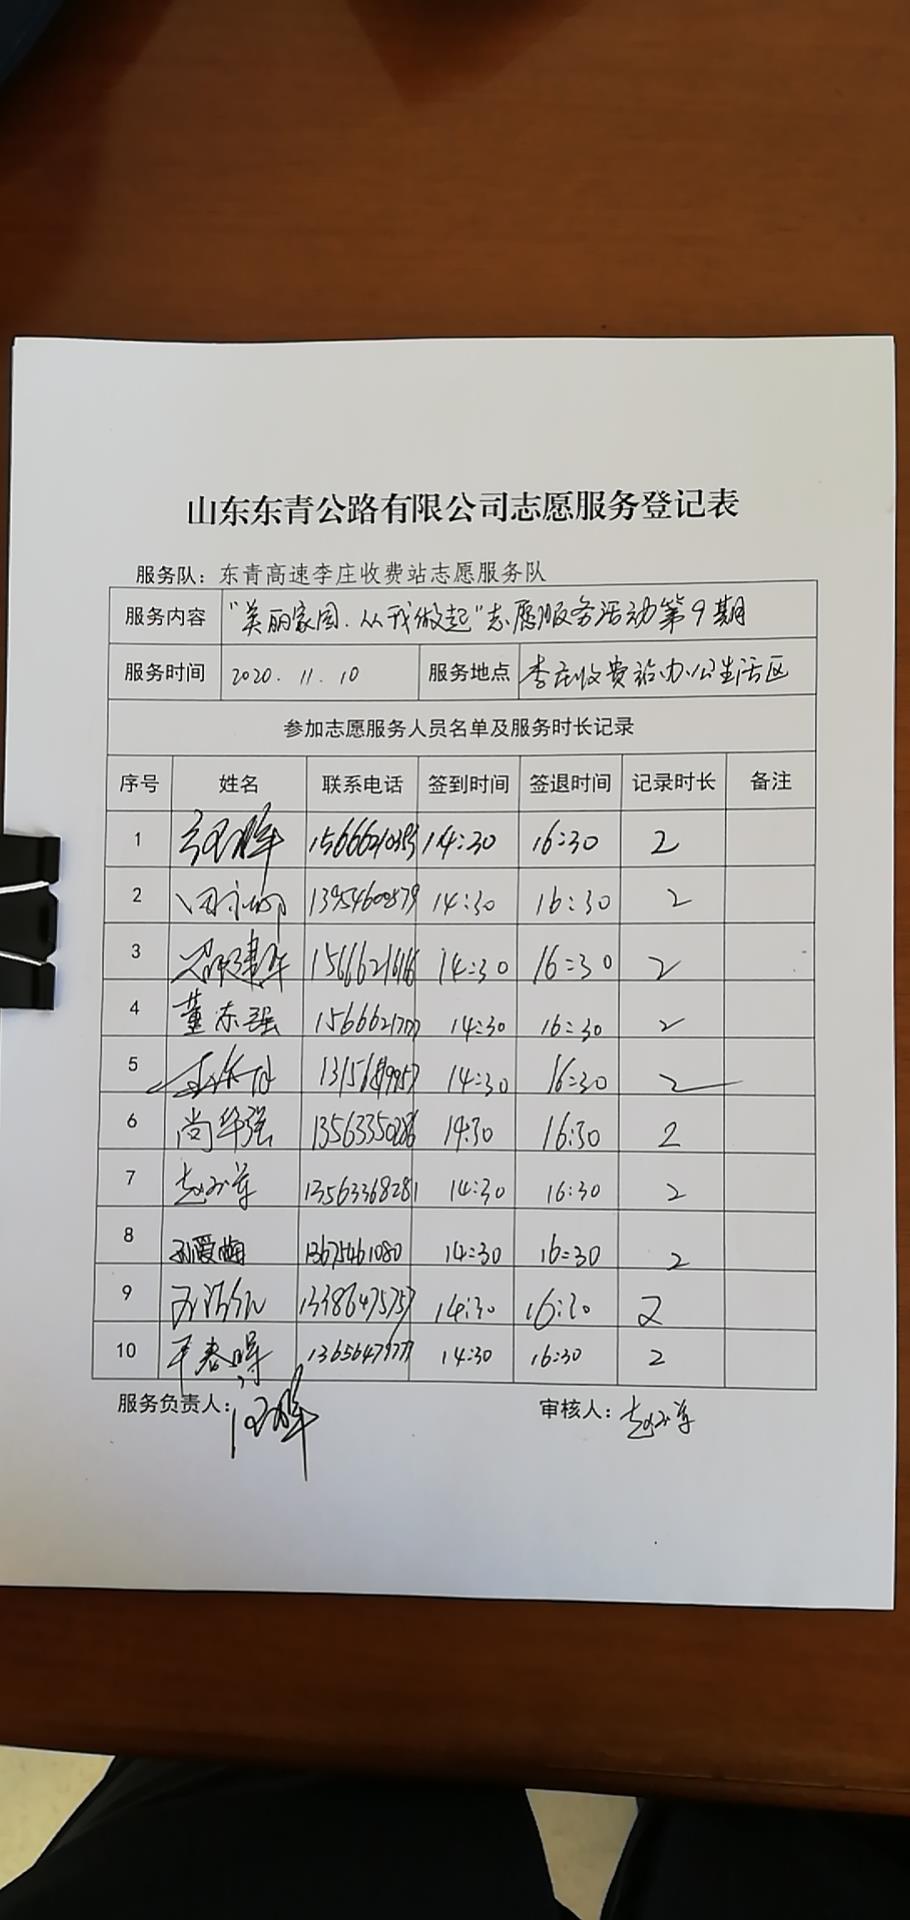 山东东青公路有限公司志愿服务登记表
服务队：东青高速李庄收费站志愿服务队
服务内容 “美丽家园.从我做起”志愿服务活动第9期
服务时间 2020.11.10 服务地点 李庄收费站办公生活区
参加志愿服务人员名单及服务时长记录
序号 姓名 联系电话 签到时间 签退时间 记录时长 备注
1 14:30 16:30 2
2 14:30 16:30 2
3 14:30 16:30 2
4 董东强 14:30 16:30 2
5 14:30 16:30 2
6 尚华强 13563350286 14:30 16:30 2
7 13563368281 14:30 16:30 2
8 13675461080 14:30 16:30 2
9 13386475757 14:30 16:30 2
10 14:30 16:30 2
服务负责人：
审核人：